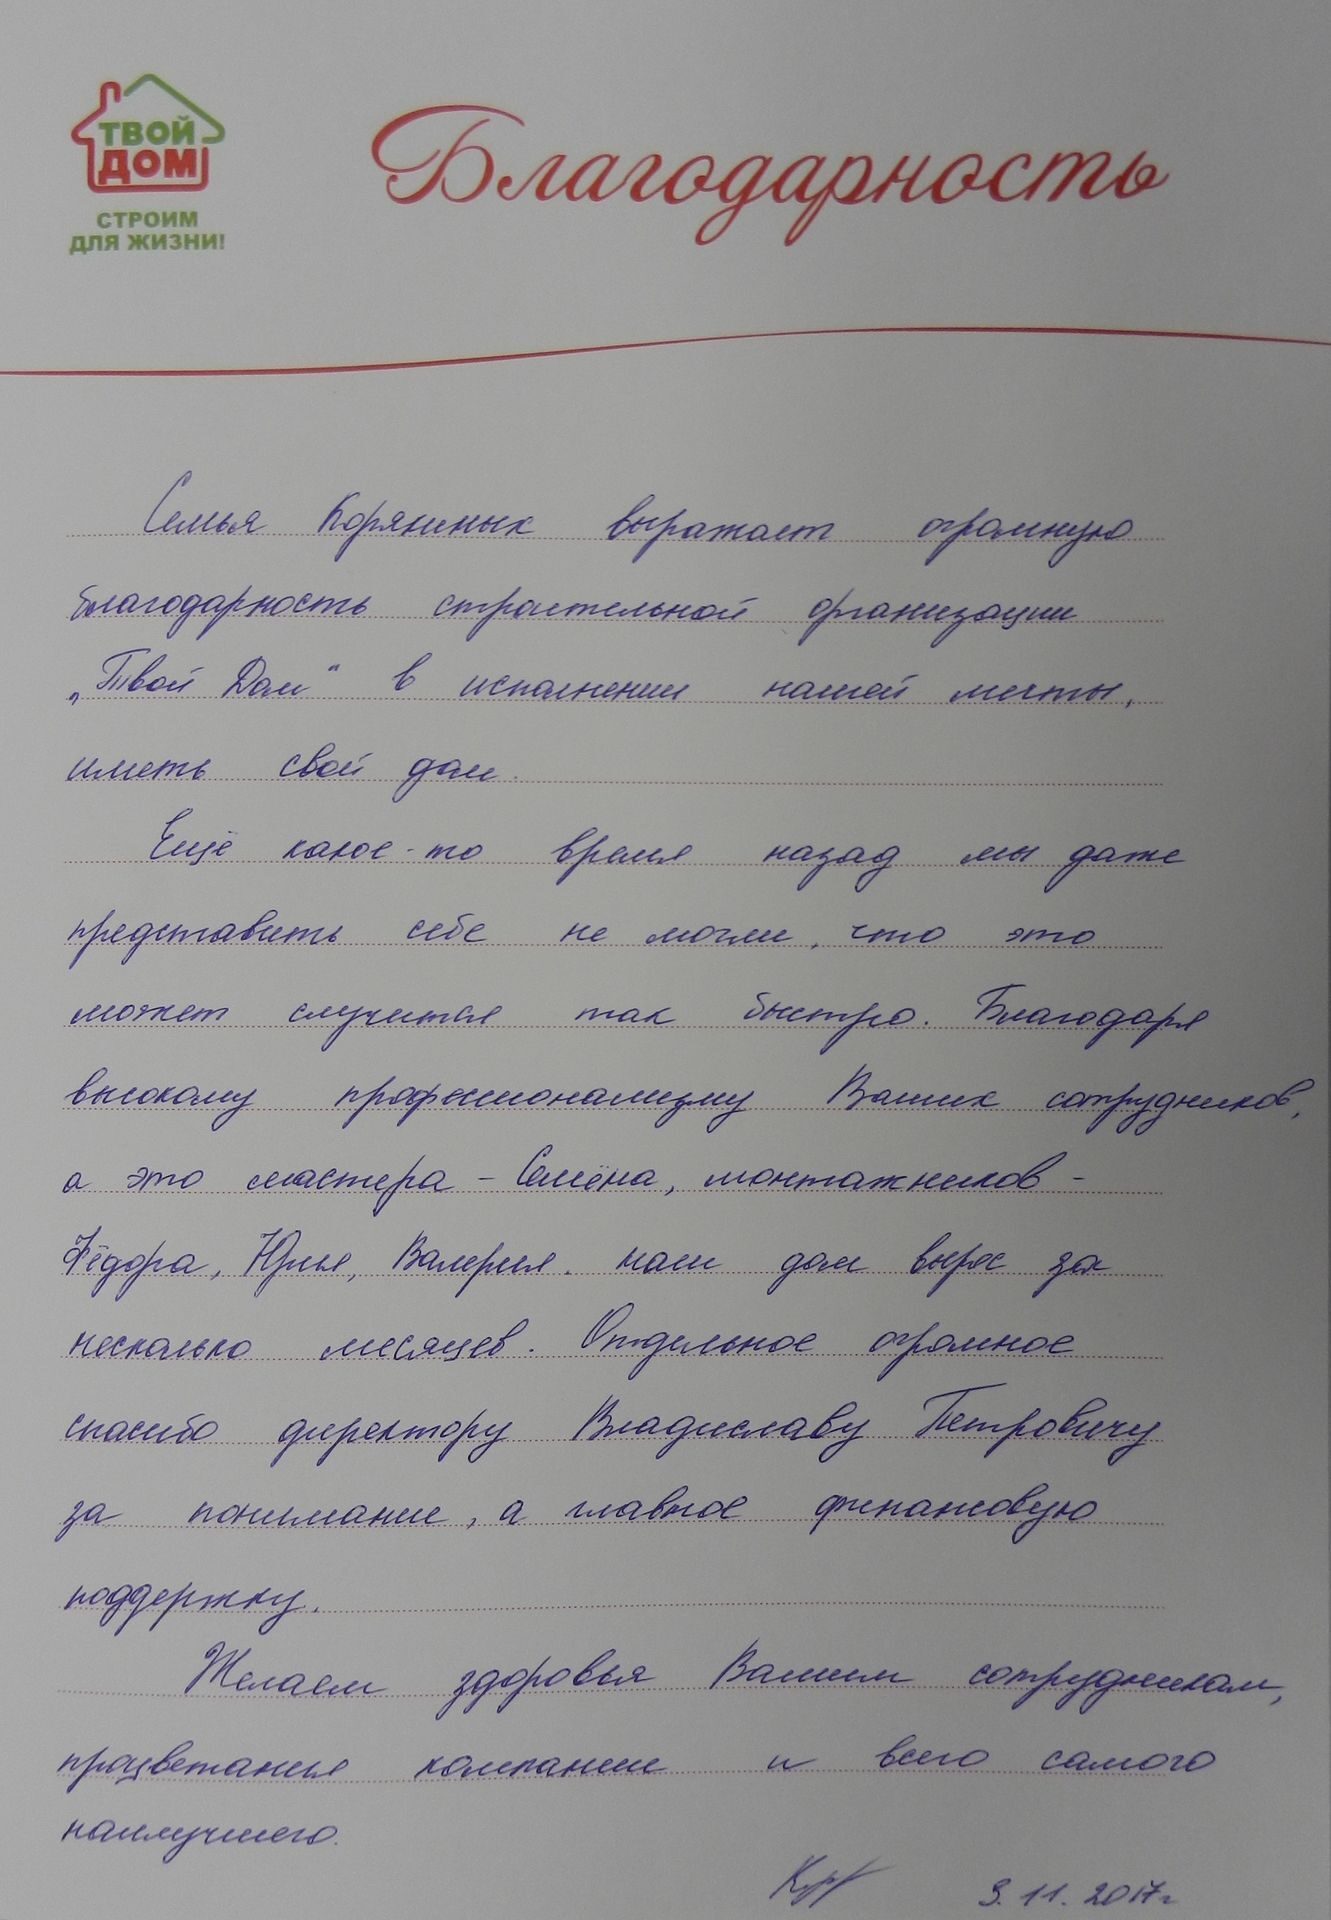 ТВОЙ
ДОМ
СТРОИМ
ДЛЯ ЖИЗНИ!
Благодарность
Семья Корякиных выражает огромную
благодарность строительной организации
„Твой Дом“ в исполнении нашей мечты,
иметь свой дом.
Ещё какое-то время назад мы даже
представить себе не могли, что это
может случится так быстро. Благодаря
высокому профессионализму Ваших сотрудников,
а это мастера - Семёна, монтажников -
Фёдора, Юрия, Валерия. наш дом вырос за
несколько месяцев. Отдельное огромное
спасибо директору Владиславу Петровичу
за понимание, а главное финансовую
поддержку.
Желаем здоровья Вашим сотрудникам,
процветания компании и всего самого
наилучшего.
3.11.2017г